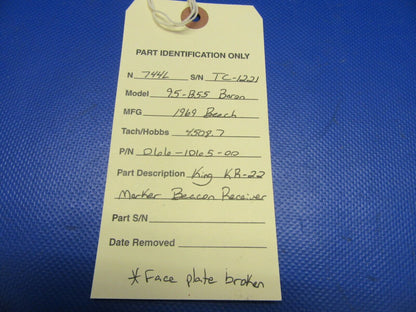 PART IDENTIFICATION ONLY
N 7446 S/N TC-1221
Model 95-B55 Baron
MFG 1969 Beech
Tach/Hobbs 4508.7
P/N 066-1065-00
Part Description King KR-22
Marker Beacon Receiver
Part S/N
Date Removed
* Face plate broken